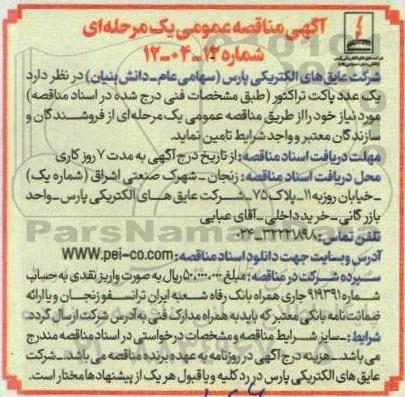 آگهی مناقصه عمومی یک مرحله‌ای
شماره ۱۲-۰۴-۱۲
شرکت عایق های الکتریکی پارس (سهامی عام - دانش بنیان) در نظر دارد
یک عدد پاکت تراکتور (طبق مشخصات فنی درج شده در اسناد مناقصه)
مورد نیاز خود را از طریق مناقصه عمومی یک مرحله ای از فروشندگان و
سازندگان معتبر و واجد شرایط تامین نماید.
مهلت دریافت اسناد مناقصه: از تاریخ درج آگهی به مدت ۷ روز کاری
محل دریافت اسناد مناقصه: زنجان - شهرک صنعتی اشراق (شماره یک)
- خیابان روزبه ۱۱ - پلاک ۷۵ - شرکت عایق های الکتریکی پارس - واحد
بازرگانی - خرید داخلی - آقای عبایی
تلفن تماس: ۳۲۲۲۱۸۹۸-۰۲۴
آدرس وبسایت جهت دانلود اسناد مناقصه: www.pei-co.com
سپرده شرکت در مناقصه: مبلغ ۵۰۰،۰۰۰،۰۰۰ ریال به صورت واریز نقدی به حساب
شماره ۹۱۹۳۹۱ جاری همراه بانک رفاه شعبه ایران ترانسفو زنجان و یا ارائه
ضمانت نامه بانکی معتبر که باید به همراه مدارک فنی به آدرس شرکت ارسال گردد.
شرایط: - سایر شرایط مناقصه و مشخصات درخواستی در اسناد مناقصه مندرج
می باشد. - هزینه درج آگهی در روزنامه به عهده برنده مناقصه می باشد. - شرکت
عایق های الکتریکی پارس در رد کلیه و یا قبول هر یک از پیشنهادها مختار است.
ParsNamad